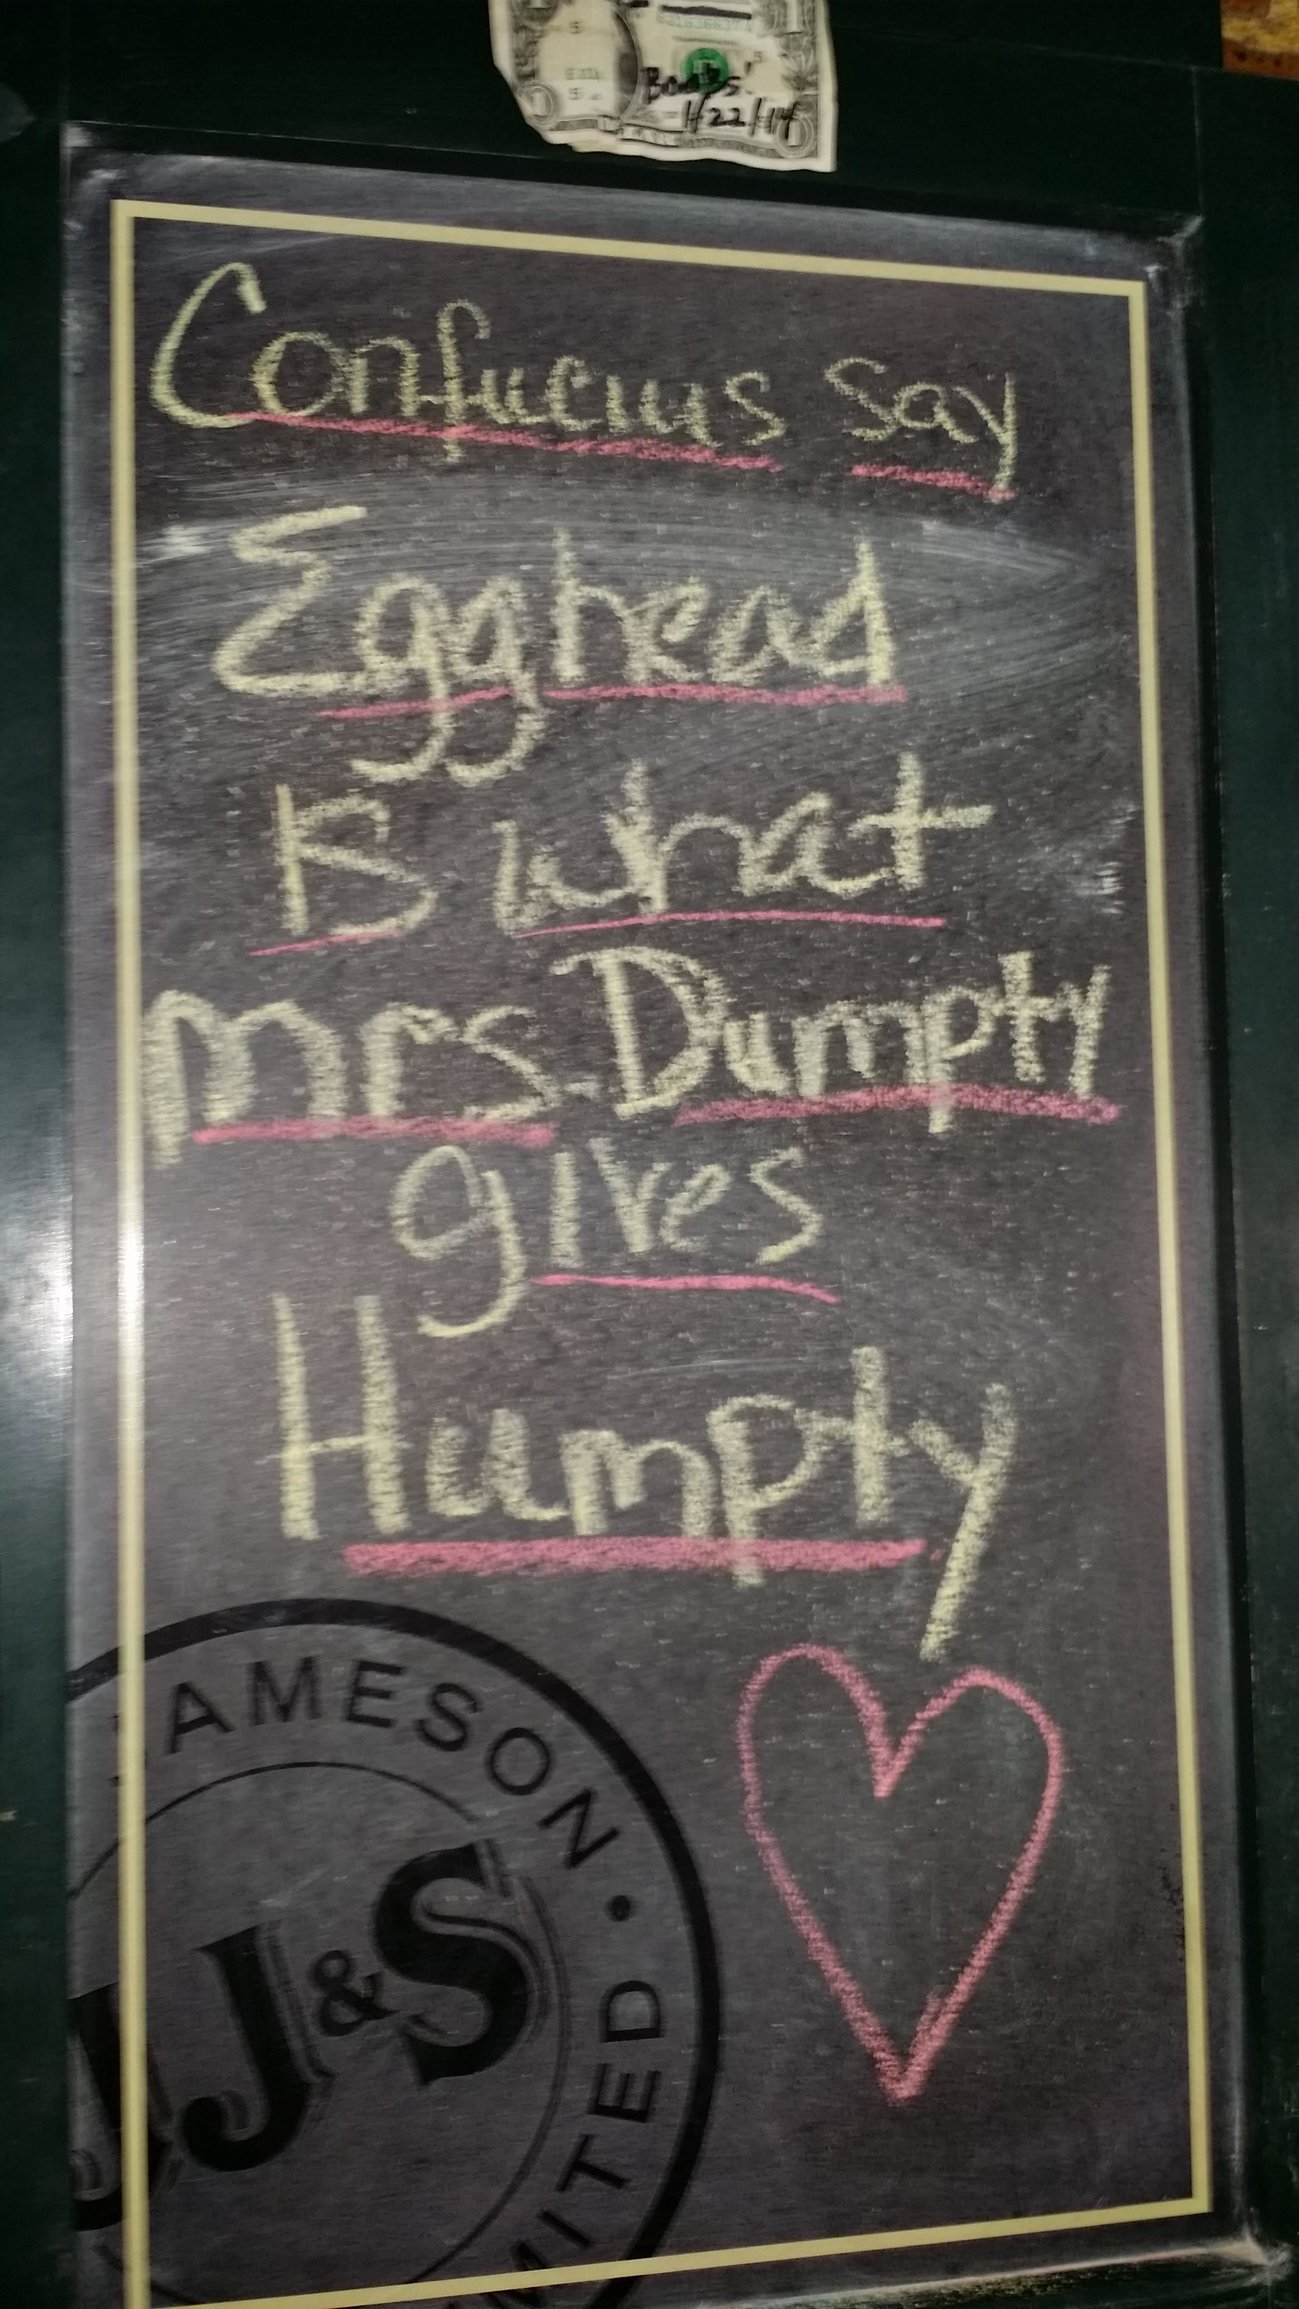 Boobs!
1/22/14
Confucius say
Egghead
is what
Mrs. Dumpty
gives
Humpty
JAMESON
JJ&S
LIMITED